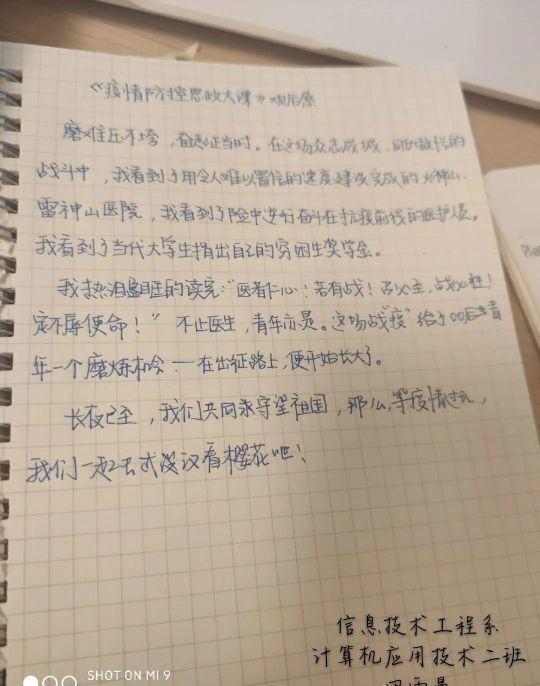 《疫情防控思政大课》观后感
磨难压不垮，奋起正当时。在这场众志成城、同仇敌忾的
战斗中，我看到了用令人难以置信的速度建设完成的火神山、
雷神山医院，我看到了险中逆行奋斗在抗疫前线的医护人员。
我看到了当代大学生捐出自己的穷困生奖学金。
我热泪盈眶的读完："医者仁心！若有战！召必至，战必胜！
定不辱使命！" 不止医生，青年亦是。这场战"疫"给了00后青
年一个磨炼机会——在出征路上，便开始长大了。
长夜已至，我们共同永守望祖国，那么，等疫情过后，
我们一起去武汉看樱花吧！
信息技术工程系
计算机应用技术二班
SHOT ON MI 9